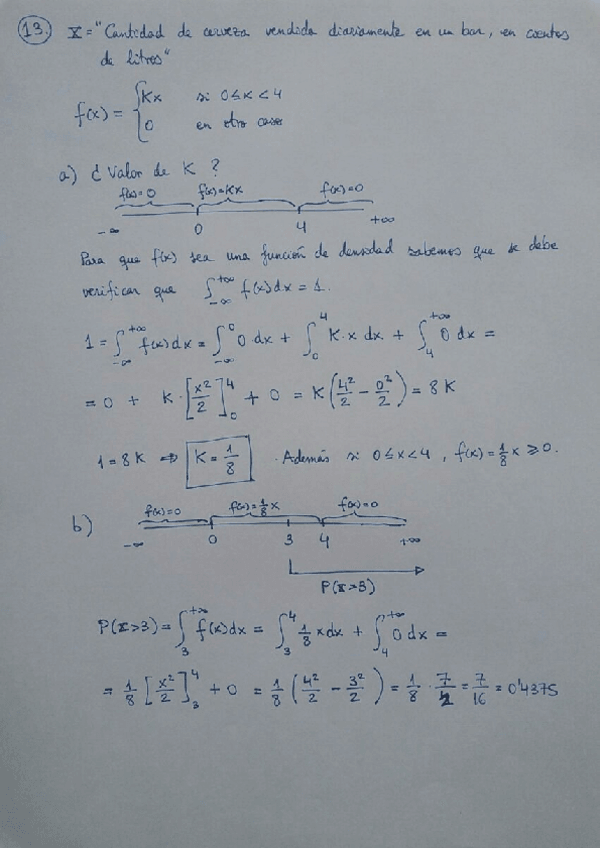 13. X = "Cantidad de cerveza vendida diariamente en un bar, en cientos
de litros"
f(x) = { Kx si 0 ≤ x < 4
0 en otro caso
a) ¿Valor de K?
f(x)=0 f(x)=Kx f(x)=0
-∞ 0 4 +∞
Para que f(x) sea una función de densidad sabemos que se debe
verificar que ∫_{-∞}^{+∞} f(x)dx = 1.
1 = ∫_{-∞}^{+∞} f(x)dx = ∫_{-∞}^{0} 0·dx + ∫_{0}^{4} K·x dx + ∫_{4}^{+∞} 0 dx =
= 0 + K·[x²/2]_{0}^{4} + 0 = K(4²/2 - 0²/2) = 8K
1 = 8K ⇒ K = 1/8 . Además si 0 ≤ x < 4, f(x) = 1/8 x ≥ 0.
b) f(x)=0 f(x)=1/8 x f(x)=0
-∞ 0 3 4 +∞
P(X>3)
P(X>3) = ∫_{3}^{+∞} f(x)dx = ∫_{3}^{4} 1/8 x dx + ∫_{4}^{+∞} 0 dx =
= 1/8 [x²/2]_{3}^{4} + 0 = 1/8 (4²/2 - 3²/2) = 1/8 · 7/2 = 7/16 = 0'4375